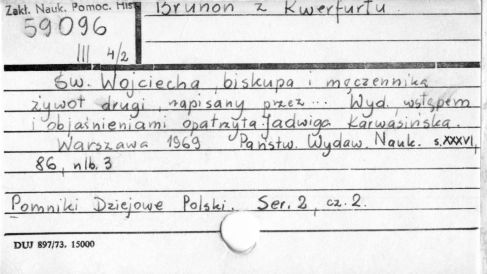 Zakł. Nauk. Pomoc. Hist
59096
III 4/2
Brunon z Kwerfurtu.
Św. Wojciecha, biskupa i męczennika
żywot drugi, napisany przez... Wyd., wstępem
i objaśnieniami opatrzyła Jadwiga Karwasińska.
Warszawa 1969 Państw. Wydaw. Nauk. s. XXXVI,
86, nlb. 3
Pomniki Dziejowe Polski. Ser. 2, cz. 2.
DUJ 897/73. 15000